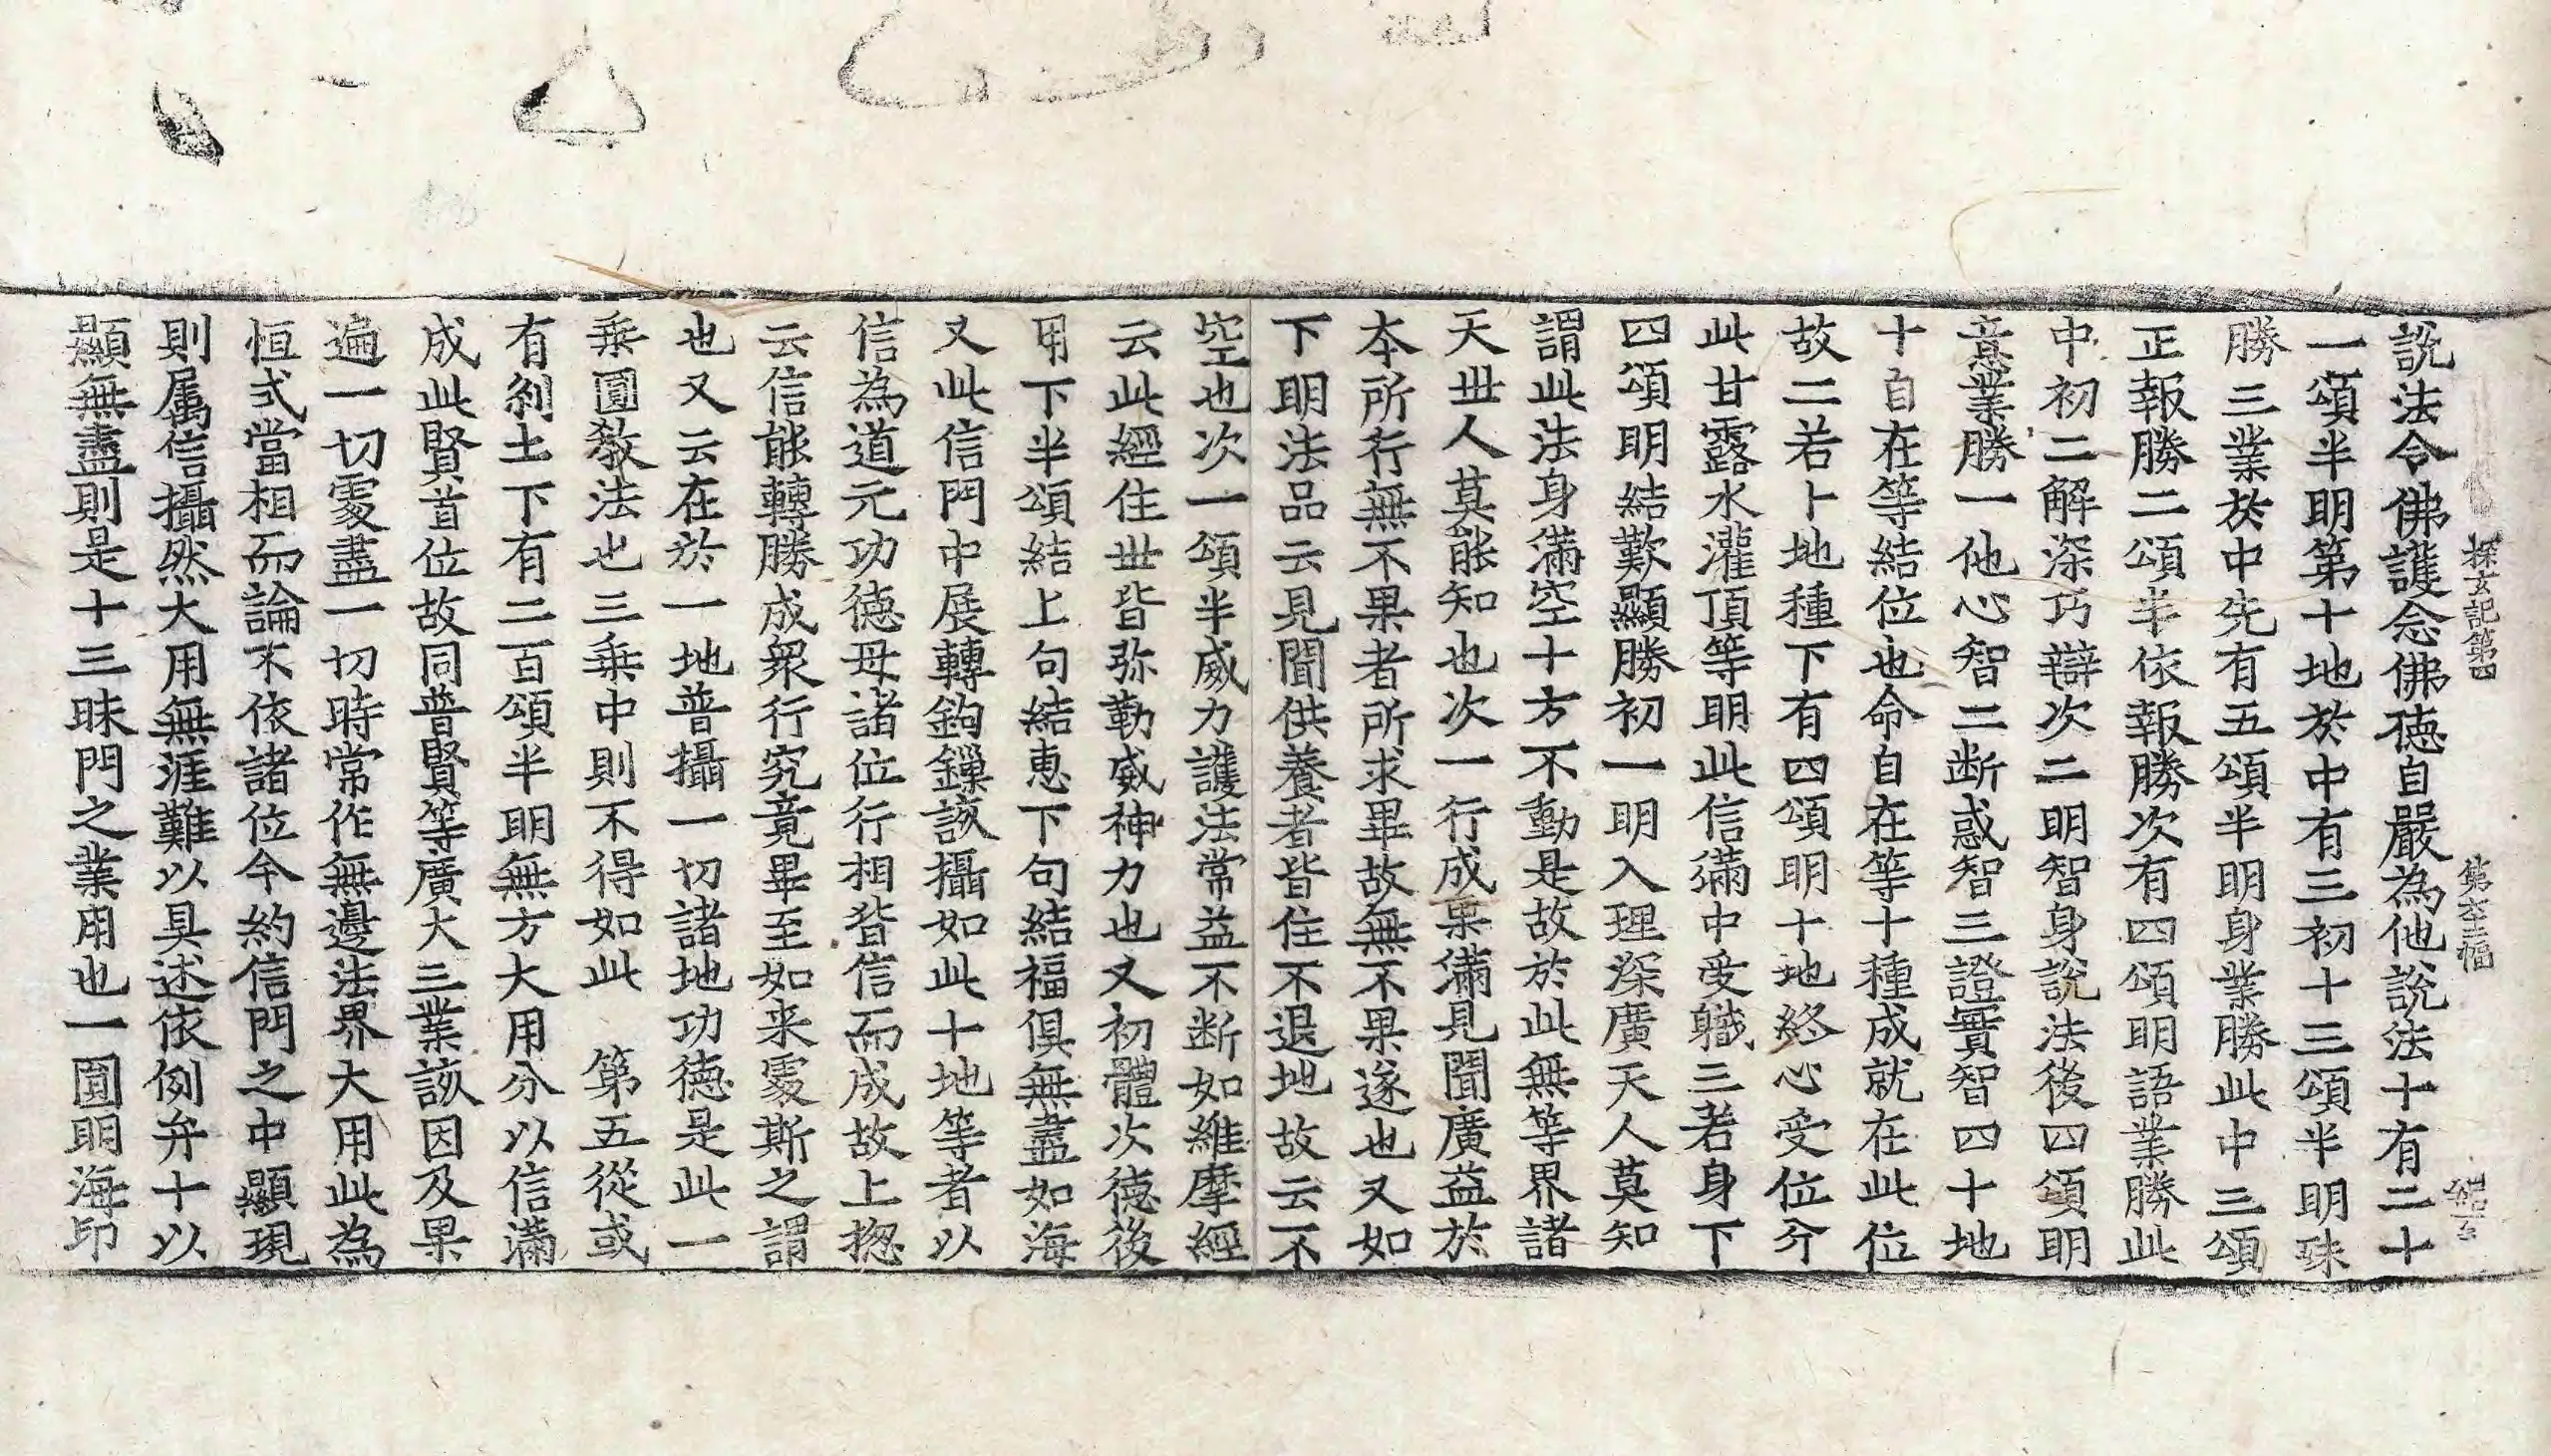 探玄記第四 第六十三幅
說法令佛護念佛德自嚴為他說法十有二十
一頌半明第十地於中有三初十三頌半明殊
勝三業於中先有五頌半明身業勝此中三頌
正報勝二頌半依報勝次有四頌明語業勝此
中初二解深巧辯次二明智身說法後四頌明
意業勝一他心智二断惑智三證實智四十地
十自在等結位也命自在等十種成就在此位
故二若卜地種下有四頌明十地終心受位分
此甘露水灌頂等明此信滿中受職三若身下
四頌明結歎顯勝初一明入理深廣天人莫知
謂此法身滿空十方不動是故於此無等界諸
天丗人莫能知也次一行成果滿見聞廣益於
本所行無不果者所求畢故無不果遂也又如
下明法品云見聞供養者皆住不退地故云不
空也次一頌半威力護法常益不断如維摩經
云此經住丗皆弥勒威神力也又初體次德後
用下半頌結上句結恵下句結福俱無盡如海
又此信門中展轉鉤鏁該攝如此十地等者以
信為道元功德母諸位行相皆信而成故上揔
云信能轉勝成衆行究竟畢至如来䖏斯之謂
也又云在於一地普攝一切諸地功德是此一
乗圓教法也三乗中則不得如此 第五從或
有刹土下有二百頌半明無方大用分以信滿
成此賢首位故同普賢等廣大三業該因及果
遍一切䖏盡一切時常作無邊法界大用此為
恒式當相而論不依諸位今約信門之中顯現
則属信攝然大用無涯難以具述依例弁十以
顯無盡則是十三昧門之業用也一圓明海印